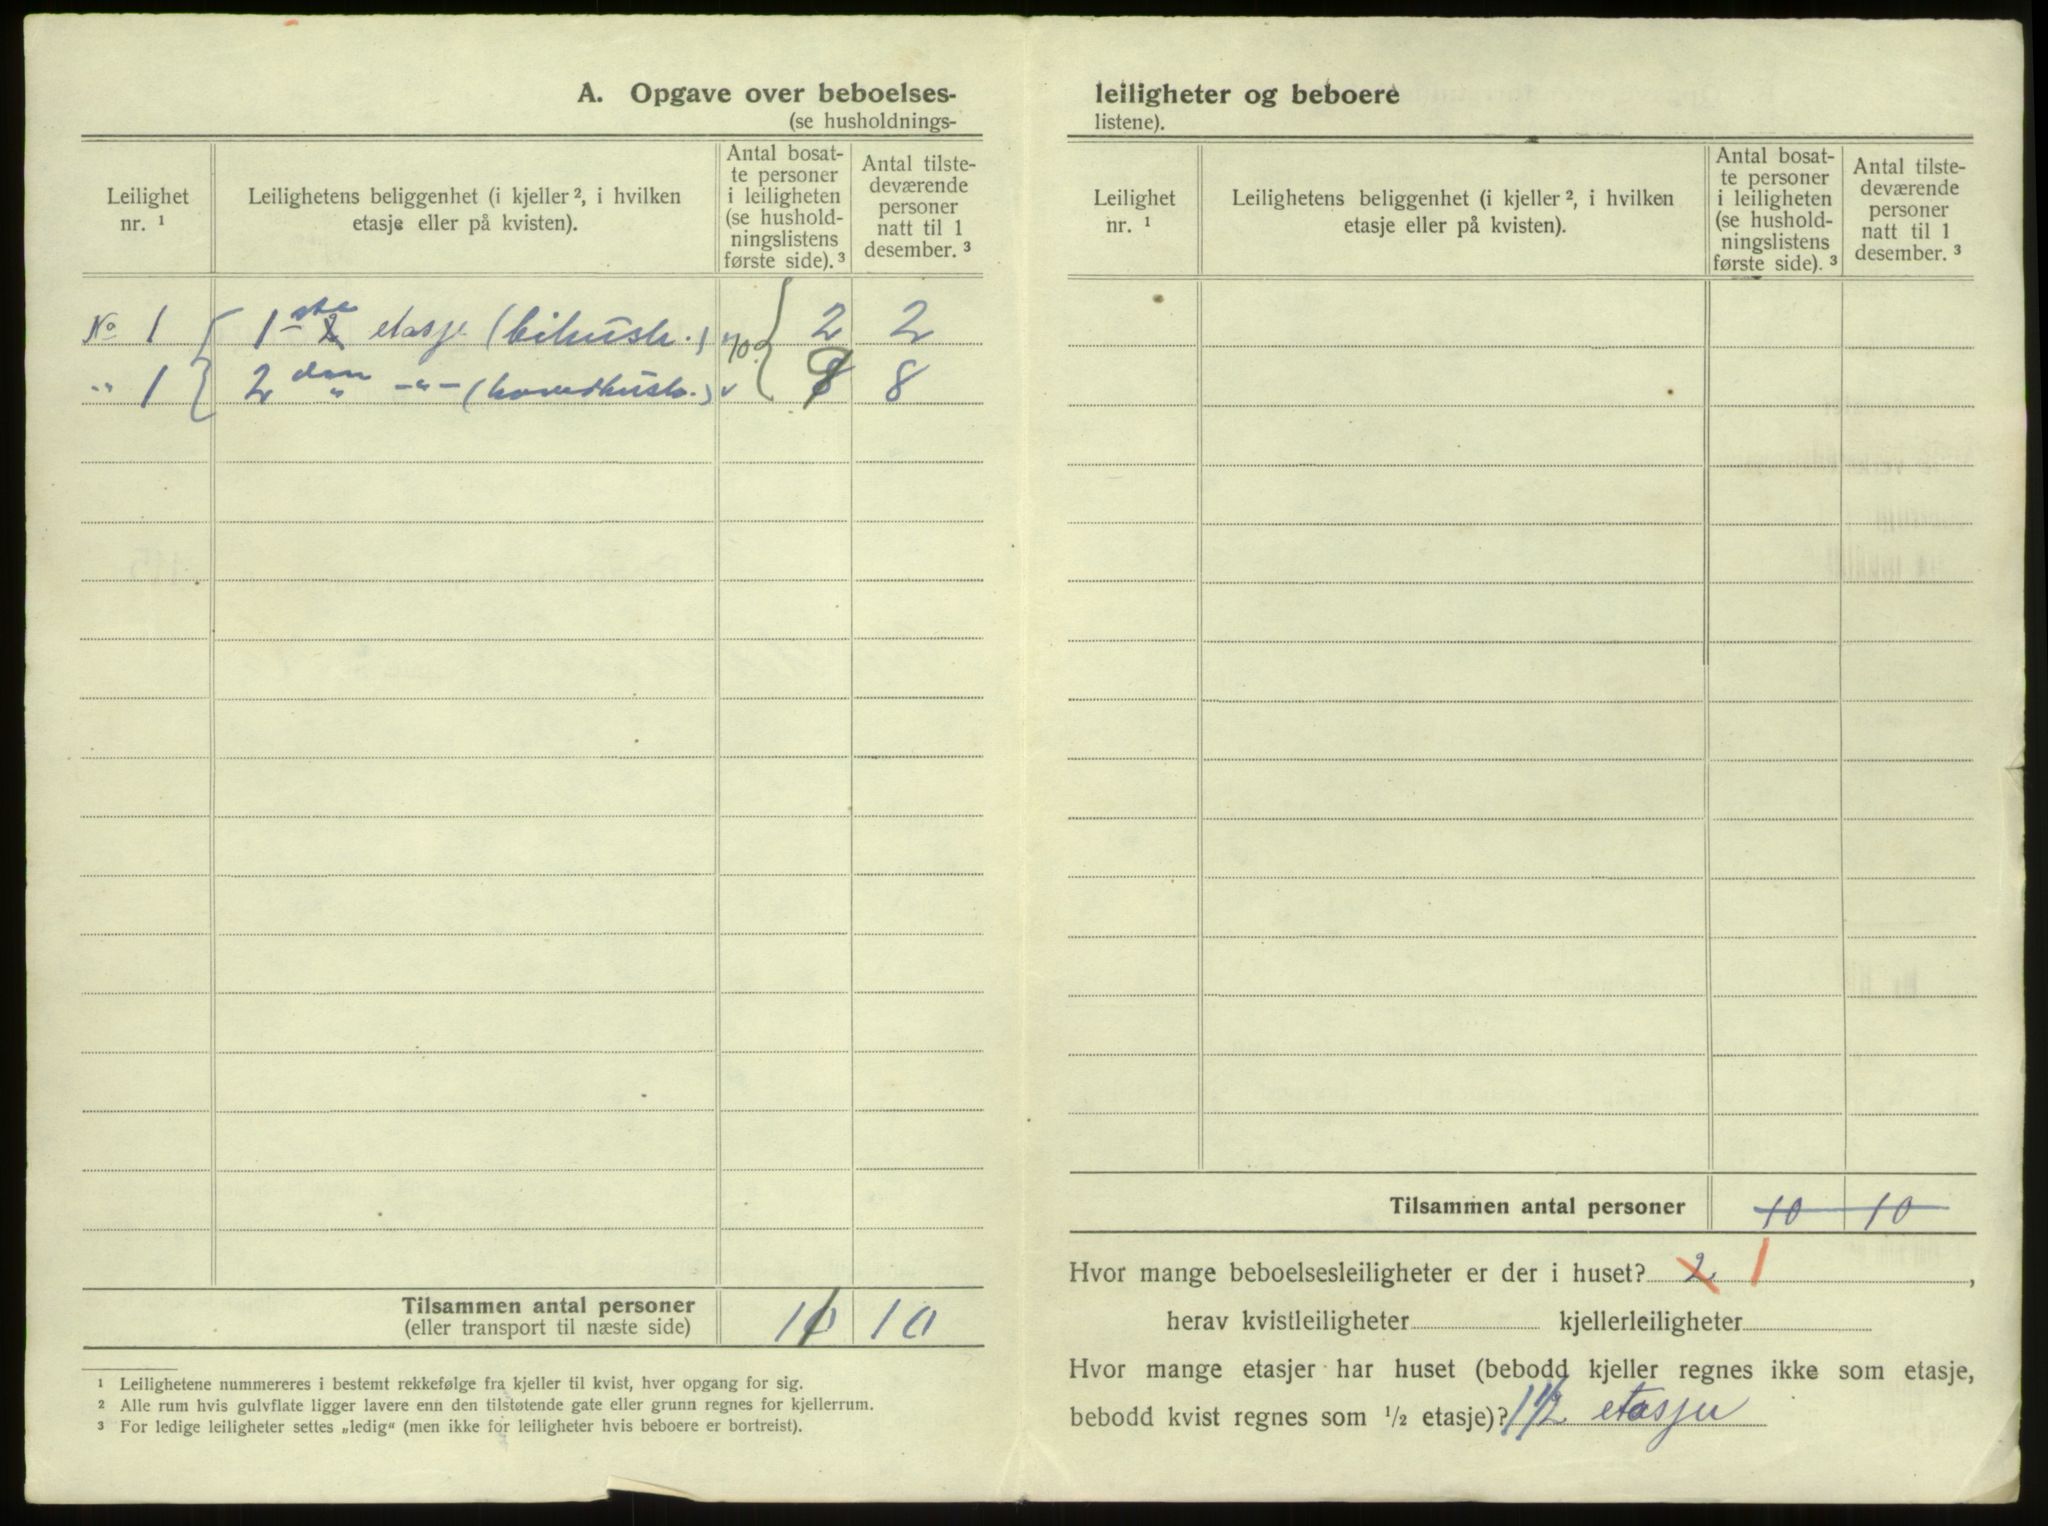 A. Opgave over beboelses-
(se husholdnings-
Leilighet nr. ¹
Leilighetens beliggenhet (i kjeller ², i hvilken
etasje eller på kvisten).
Antal bosat-
te personer
i leiligheten
(se hushold-
ningslistens
første side). ³
Antal tilste-
deværende
personer
natt til 1
desember. ³
No 1 1 ste etasje (bihush.) 2 2
" 1 2 den " -"- (hovedhush.) 8
Tilsammen antal personer
(eller transport til næste side)
10
¹ Leilighetene nummereres i bestemt rekkefølge fra kjeller til kvist, hver opgang for sig.
² Alle rum hvis gulvflate ligger lavere enn den tilstøtende gate eller grunn regnes for kjellerrum.
³ For ledige leiligheter settes „ledig“ (men ikke for leiligheter hvis beboere er bortreist).
leiligheter og beboere
listene).
Leilighet nr. ¹
Leilighetens beliggenhet (i kjeller ², i hvilken
etasje eller på kvisten).
Antal bosat-
te personer
i leiligheten
(se hushold-
ningslistens
første side). ³
Antal tilste-
deværende
personer
natt til 1
desember. ³
Tilsammen antal personer 10 10
Hvor mange beboelsesleiligheter er der i huset? 2 1 ,
herav kvistleiligheter kjellerleiligheter
Hvor mange etasjer har huset (bebodd kjeller regnes ikke som etasje,
bebodd kvist regnes som ½ etasje)? 1½ etasjer